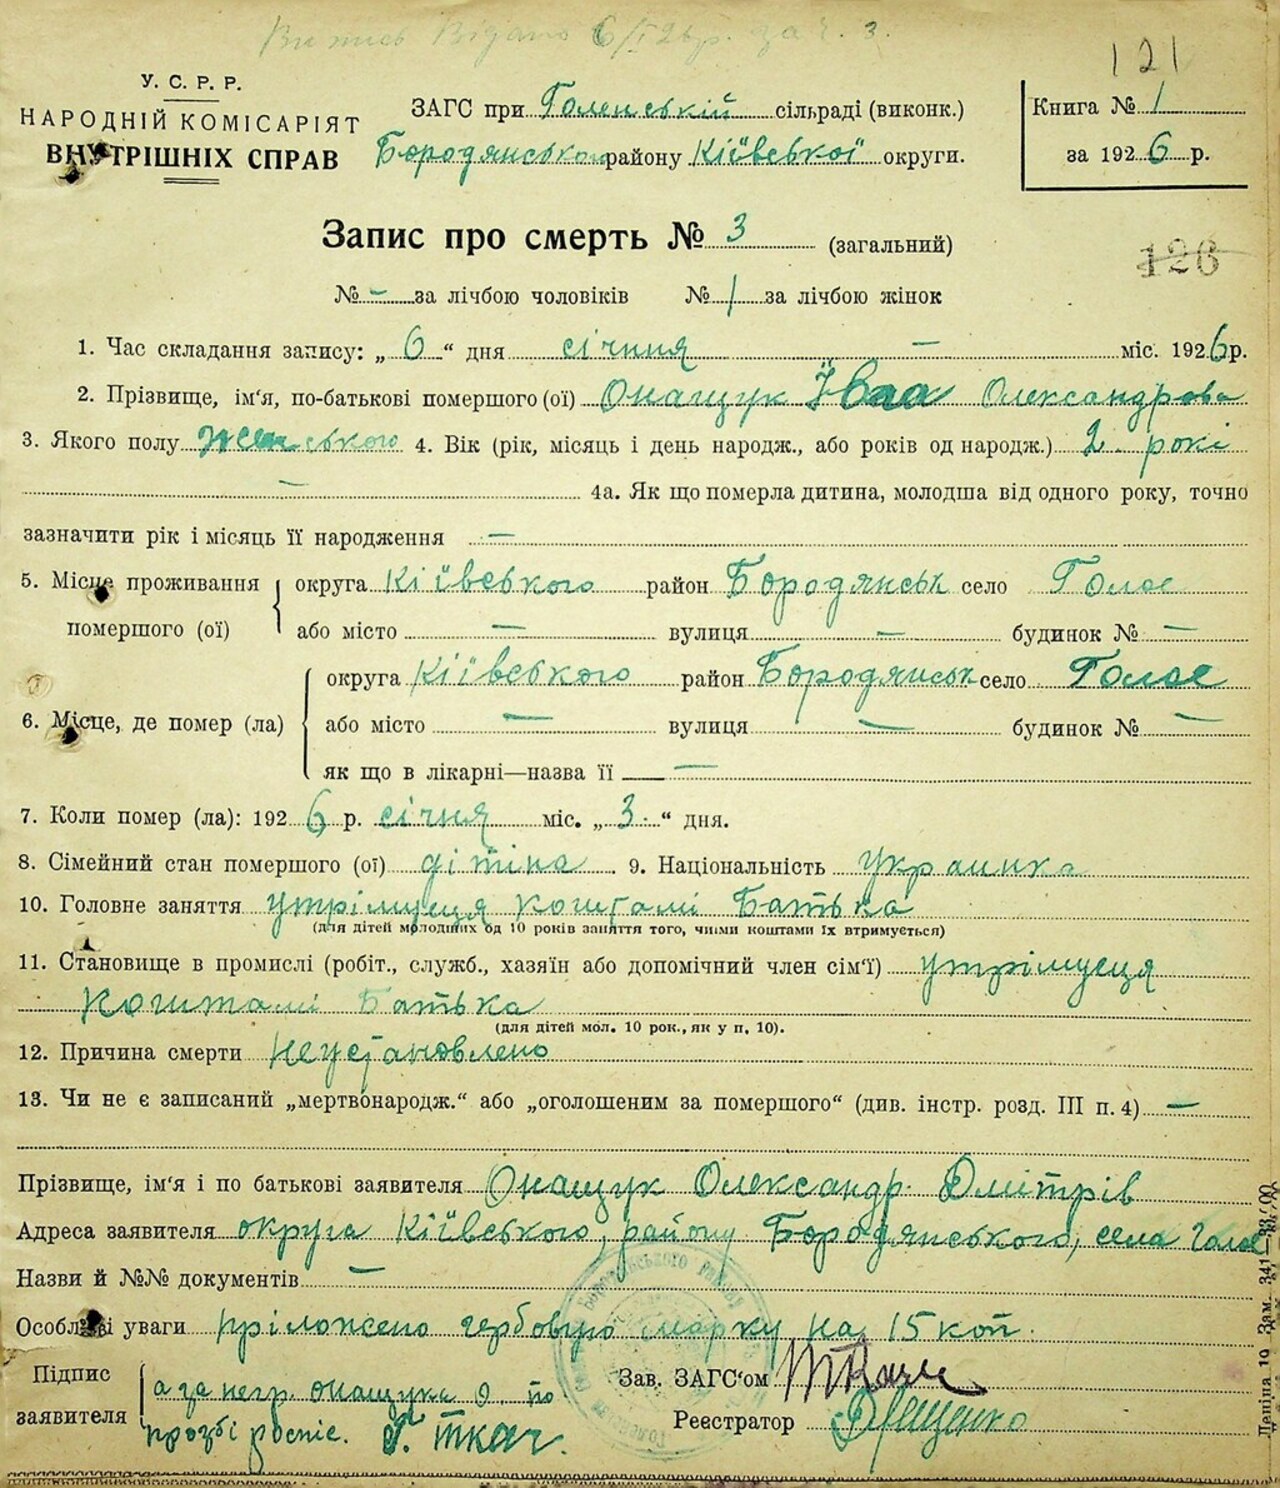 Витись Відано 6/I 26р. за ч. 3.
121
У. С. Р. Р.
НАРОДНІЙ КОМІСАРІЯТ
ВНУТРІШНІХ СПРАВ
ЗАГС при Голенській сільраді (виконк.)
Бородянського району Київської округи.
Книга № 1
за 1926 р.
Запис про смерть № 3 (загальний)
126
№ - за лічбою чоловіків № 1 за лічбою жінок
1. Час складання запису: „ 6 “ дня січния — міс. 1926р.
2. Прізвище, ім‘я, по-батькові помершого (ої) Онащук Олександрова
3. Якого полу женського 4. Вік (рік, місяць і день народж., або років од народж.) 2 рокі
— 4а. Як що померла дитина, молодша від одного року, точно
зазначити рік і місяць її народження —
5. Місце проживання помершого (ої) округа Кіївського район Бородянськ село Голое
або місто — вулиця — будинок № —
6. Місце, де помер (ла) округа Кіївського район Бородянськ село Голое
або місто — вулиця — будинок № —
як що в лікарні—назва її —
7. Коли помер (ла): 1926 р. січня міс. „ 3 “ дня.
8. Сімейний стан помершого (ої) дітіна 9. Національність украинка
10. Головне заняття утрімуеця коштамі Батька
(для дітей молодших од 10 років заняття того, чиїми коштами їх втримується)
11. Становище в промислі (робіт., служб., хазяїн або допомічний член сім‘ї) утрімуеця
коштамі Батька
(для дітей мол. 10 рок., як у п. 10).
12. Причина смерти Неустановлено
13. Чи не є записаний „мертвонародж.“ або „оголошеним за помершого“ (див. інстр. розд. III п. 4) —
Прізвище, ім‘я і по батькові заявителя Онащук Олександр Дмітрів
Адреса заявителя округа Кіївського, району Бородянського, села Голое
Назви й №№ документів —
Особливі уваги пріложено гербовую марку на 15 коп.
Підпис заявителя а за негр. Онащука О. по
прозбі роспіс. Г. Ткач.
Зав. ЗАГС‘ом Ткач
Реєстратор